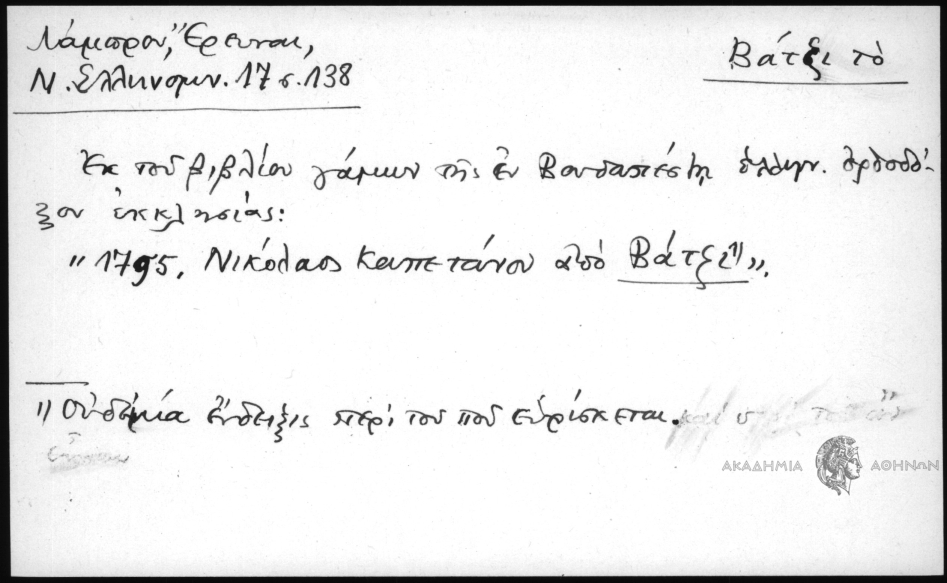 Λάμπρου, Ἔρευναι,
Ν. Ἑλληνομν. 17 σ. 138
Βάτζι τὸ
Ἐκ τοῦ βιβλίου γάμων τῆς ἐν Βουδαπέστῃ ἑλλην. ὀρθοδό-
ξου ἐκκλησίας:
"1795, Νικόλαος Καπετάνου ἀπὸ Βάτζι¹)".
1) Οὐδεμία ἔνδειξις περὶ τοῦ ποῦ εὑρίσκεται.
ΑΚΑΔΗΜΙΑ ΑΘΗΝΩΝ